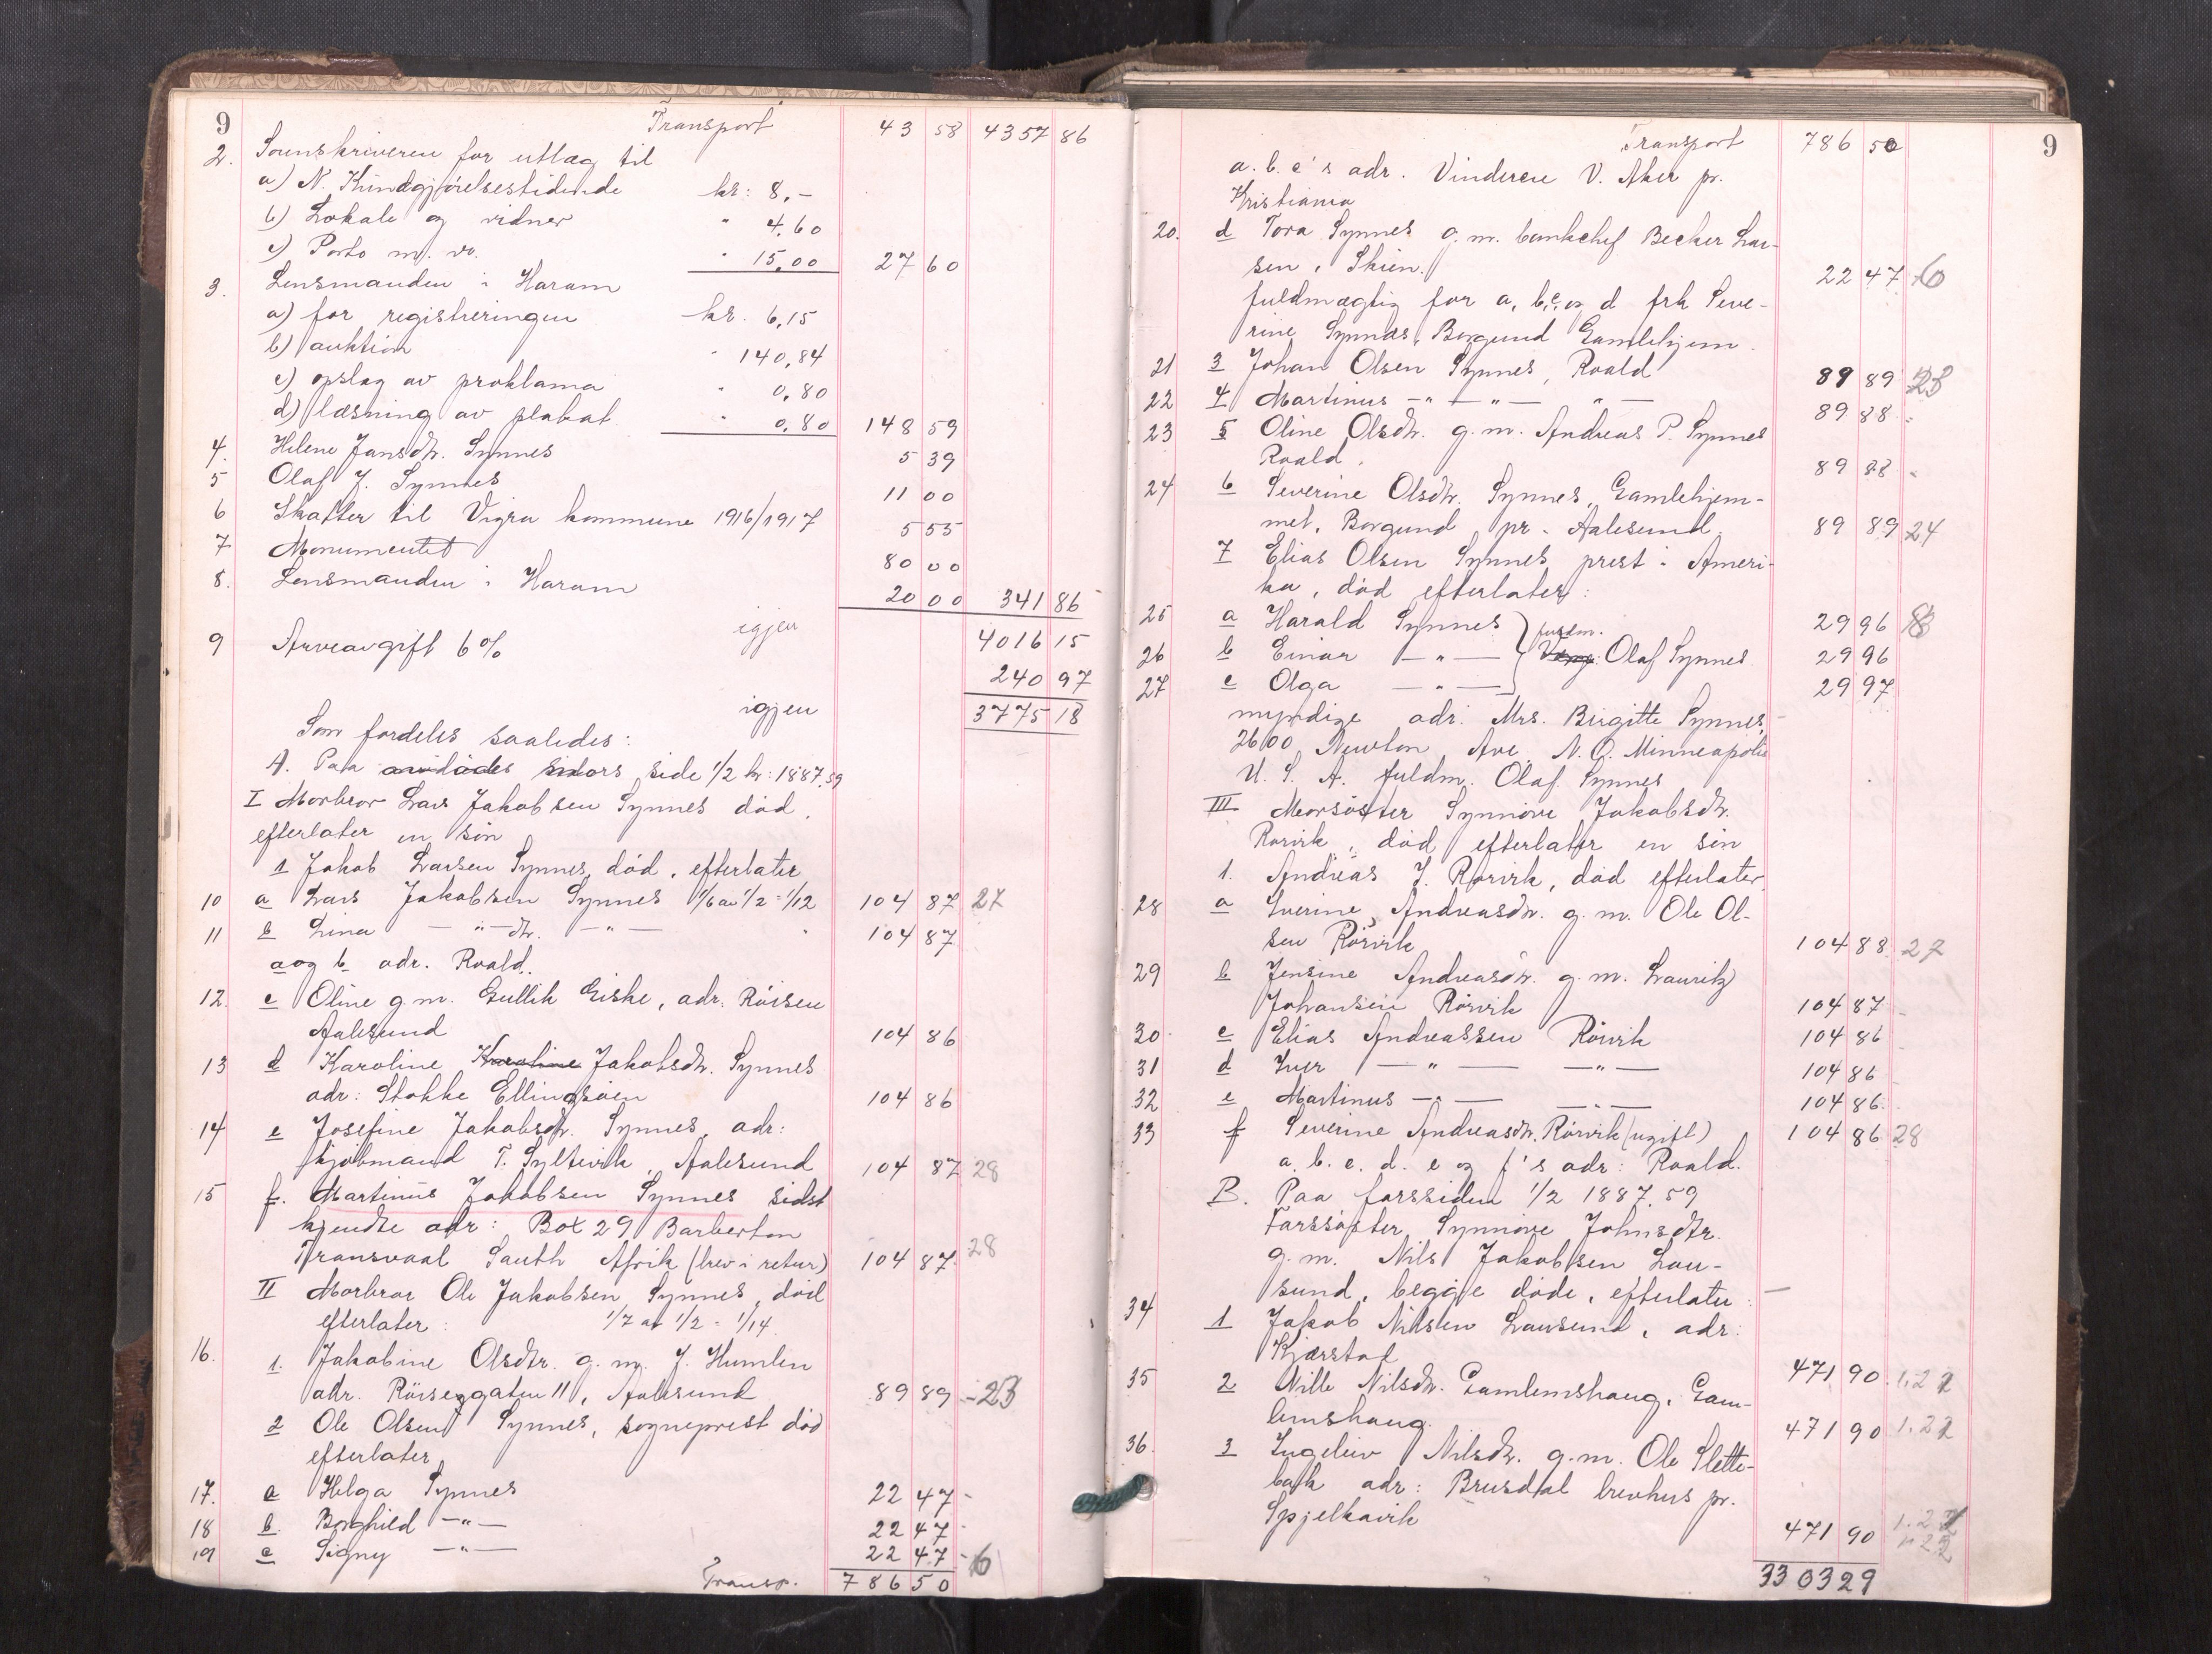 9
Transport 43 58 4357 86
2. Sorenskriveren for utlæg til
a) N. Kundgjörelsestidende kr: 8,-
b) Lokale og vidner " 4,60
c) Porto m. v. " 15,00 27 60
3. Lensmanden i Haram
a) for registreringen kr. 6,15
b) auktion " 140,84
c) opslag av proklama " 0,80
d) læsning av plakat " 0,80 148 59
4. Helene Jansdtr. Synnes 5 39
5 Olaf J. Synnes 11 00
6 Skatter til Vigra kommune 1916/1917 5 55
7 Monumentet 80 00
8. Lensmanden i Haram 20 00 341 86
igjen 4016 15
9 Arveavgift 6% 240 97
igjen 3775 18
Som fordeles saaledes:
A. Paa side 1/2 kr: 1887,59
I Morbror Lars Jakobsen Synnes död,
efterlater en sön
1 Jakob Larsen Synnes, död, efterlater
10 a Lars Jakobsen Synnes 1/6 av 1/2 = 1/12 104 87 27
11 b Lina -"- dtr. -"- " 104 87
a og b adr. Roald.
12. c Oline g.m. Gullik Giske, adr: Röisen
Aalesund 104 86
13 d Karoline Karoline Jakobsdtr. Synnes
adr: Stokke Ellingsöen 104 86
14 e Josefine Jakobsdtr. Synnes, adr:
kjöbmand T. Syltevik, Aalesund 104 87 28
15 f. Martinus Jakobsen Synnes sidst
kjendte adr: Box 29 Barberton
Transvaal South Afrik (brev i retur) 104 87 28
II Morbror Ole Jakobsen Synnes, död
efterlater: 1/7 av 1/2 = 1/14
16. 1. Jakobine Olsdtr. g.m. J. Humlen
adr. Röisegaten 11, Aalesund 89 89 - 23
2 Ole Olsen Synnes, sogneprest död
efterlater
17. a Helga Synnes 22 47 -
18 b. Borghild -"- 22 47 -
19 c Signy -"- 22 47 - 6
Transp. 786 50
9
Transport 786 50
a. b. c's adr. Vinderen V. Aker pr.
Kristiania
20. d Tora Synnes g.m. bankchef Becker Lar-
sen, Skien. 22 47 6
fuldmægtig for a, b, c og d frk Seve-
rine Synnes, Borgund Gamlehjem.
21 3 Johan Olsen Synnes, Roald 89 89 23
22 4 Martinus -"- -"- " - 89 88 -
23 5 Oline Olsdtr. g.m. Andreas P. Synnes
Roald. 89 88 -
24 6 Severine Olsdtr. Synnes, Gamlehjem-
met, Borgund pr. Aalesund 89 89 24
7 Elias Olsen Synnes, prest i Ameri-
ka, död efterlater:
25 a Harald Synnes 29 96 8
fuldm.
26 b Einar -"- Olaf Synnes 29 96
27 c Olga -"- 29 97
myndige adr: Mrs. Birgitte Synnes,
2600 Newton Ave N. O. Minneapolis
U. S. A. fuldm. Olaf Synnes
III Morsöster Synnöve Jakobsdtr.
Rörvik, död efterlater en sön
1. Andreas J. Rörvik, död efterlater
28 a Iverine Andreasdtr. g.m. Ole Ol-
sen Rörvik 104 88 27
29 b Jensine Andreasdtr. g.m. Lauritz
Johansen Rörvik 104 87 -
30. c Elias Andreassen Rörvik 104 86
31 d Iver -"- -"- 104 86
32 e Martinus -"- -"- 104 86
33 f Severine Andreasdtr. Rörvik (ugift) 104 86 28
a. b. c. d. e og f's adr: Roald.
B. Paa farssiden 1/2 1887,59
Farssöster Synnöve Johnsdtr.
g.m. Nils Jakobsen Lau-
sund, begge döde, efterlater:
34 1 Jakob Nilsen Lausund, adr:
Kjærstad 471 90 1.21
35 2 Nille Nilsdtr. Gamlemshaug, Gam-
lemshaug. 471 90 1.22
36. 3 Ingeleiv Nilsdtr. g.m. Ole Slette-
bak adr: Brusdal brevhus pr.
Spjelkavik 471 90
3303 29